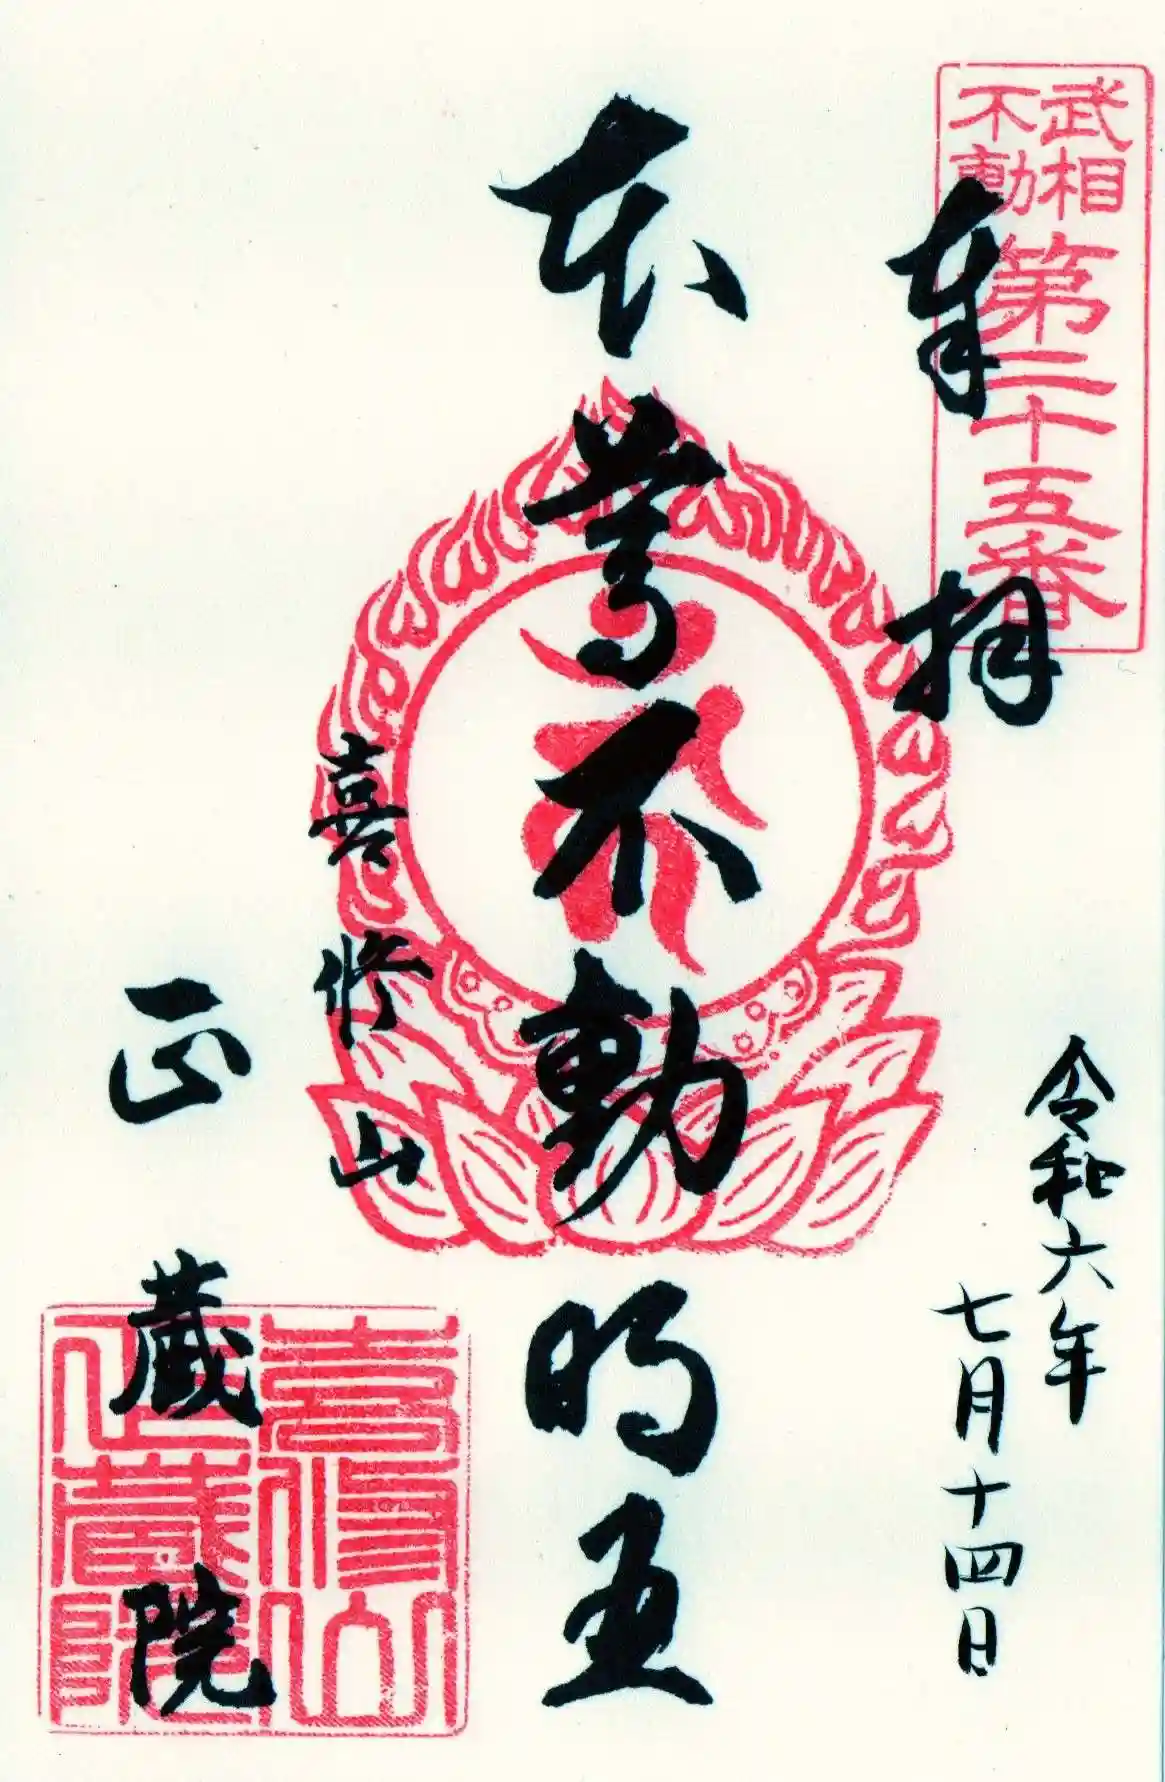 武相
不動
第二十五番
奉拝
令和六年
七月十四日
本尊不動明王
喜修山
正蔵院
喜修山
正蔵院